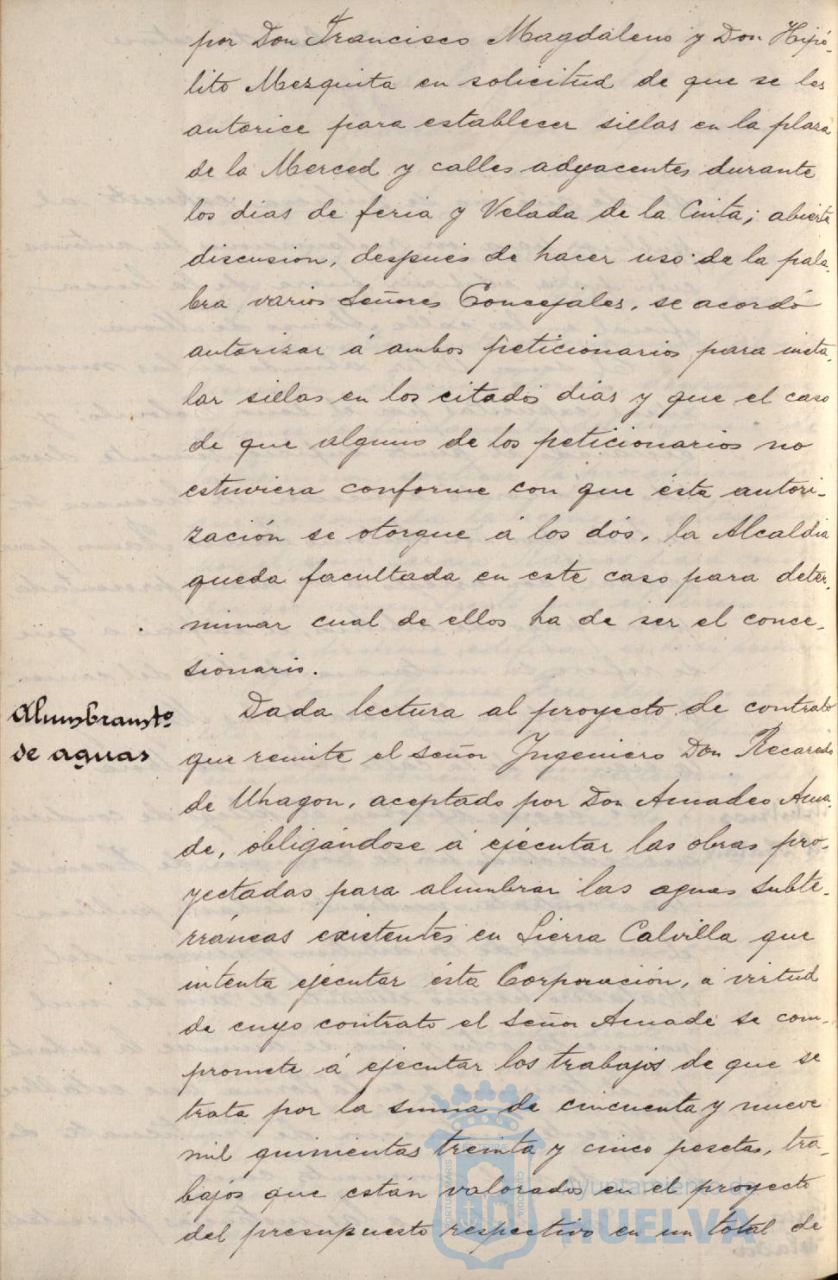 por Don Francisco Magdaleno y Don Hipó-
lito Mezquita en solicitud de que se les
autorice para establecer sillas en la plaza
de la Merced y calles adyacentes durante
los dias de feria y Velada de la Cinta; abierta
discusion, después de hacer uso de la pala-
bra varios Señores Concejales, se acordó
autorizar á ambos peticionarios para insta-
lar sillas en los citados dias y que el caso
de que alguno de los peticionarios no
estuviera conforme con que ésta autori-
zación se otorgue á los dós, la Alcaldia
queda facultada en este caso para deter-
minar cual de ellos ha de ser el conce-
sionario.
Alumbramtº
de aguas
Dada lectura al proyecto de contrato
que remite el señor Ingeniero Don Recaredo
de Uhagon, aceptado por Don Amadeo Ama-
de, obligándose á ejecutar las obras pro-
yectadas para alumbrar las aguas subte-
rráneas existentes en Sierra Calvilla que
intenta ejecutar ésta Corporación, á virtud
de cuyo contrato el señor Amade se com-
promete á ejecutar los trabajos de que se
trata por la suma de cincuenta y nueve
mil quinientas treinta y cinco pesetas, tra-
bajos que están valorados en el proyecto
del presupuesto respectivo en un total de
Ayuntamiento de
HUELVA